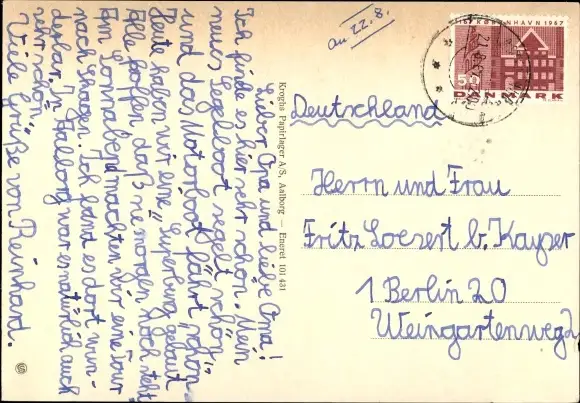 an 22.8.
1167 KØBENHAVN 1967
50
DANMARK
Deutschland
Herrn und Frau
Fritz Loesert b. Kayser
1 Berlin 20
Weingartenweg 2
Kroghs Papirlager A/S, Aalborg — Eneret 101431
Lieber Opa und liebe Oma!
Ich finde es hier sehr schön. Mein
neues Segelboot segelt schön,
und das Motorboot fährt schon.
Heute haben wir eine „Superburg" gebaut
Alle hoffen, daß sie morgen noch steht.
Am Sonnabend machten wir eine Tour
nach Skagen. Ich fand es dort wun-
derbar. In Aalborg war es natürlich auch
sehr schön.
Viele Grüße von Reinhard.